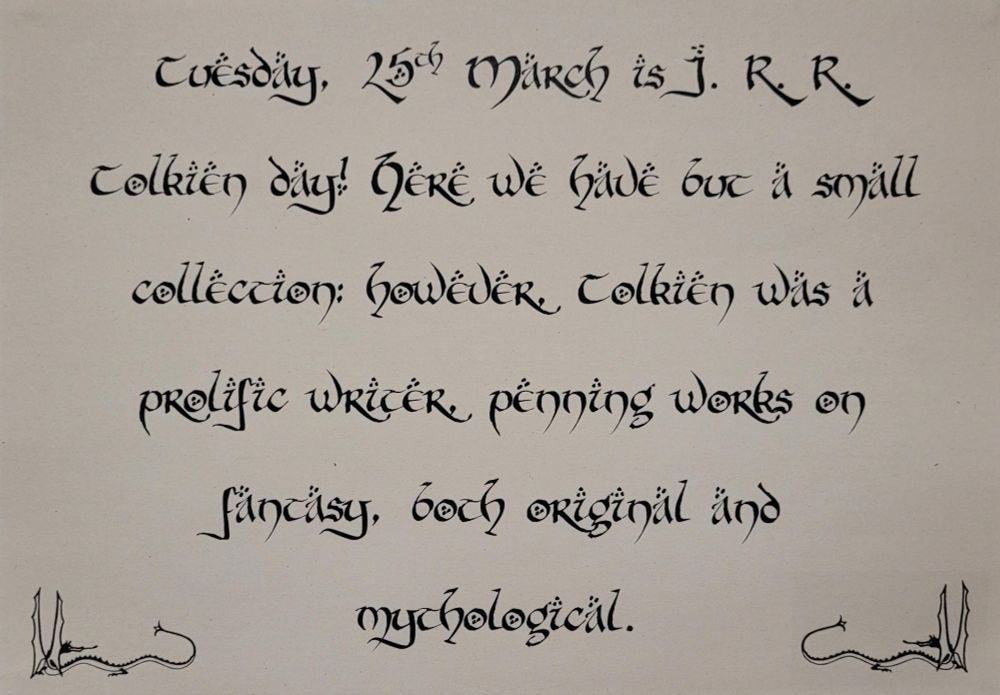 Tuesday, 25th March is J. R. R.
Tolkien day! Here we have but a small
collection; however, Tolkien was a
prolific writer, penning works on
fantasy, both original and
mythological.